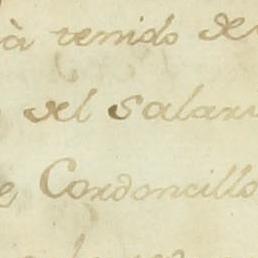 à venido de
del Salari
e Cordoncillo